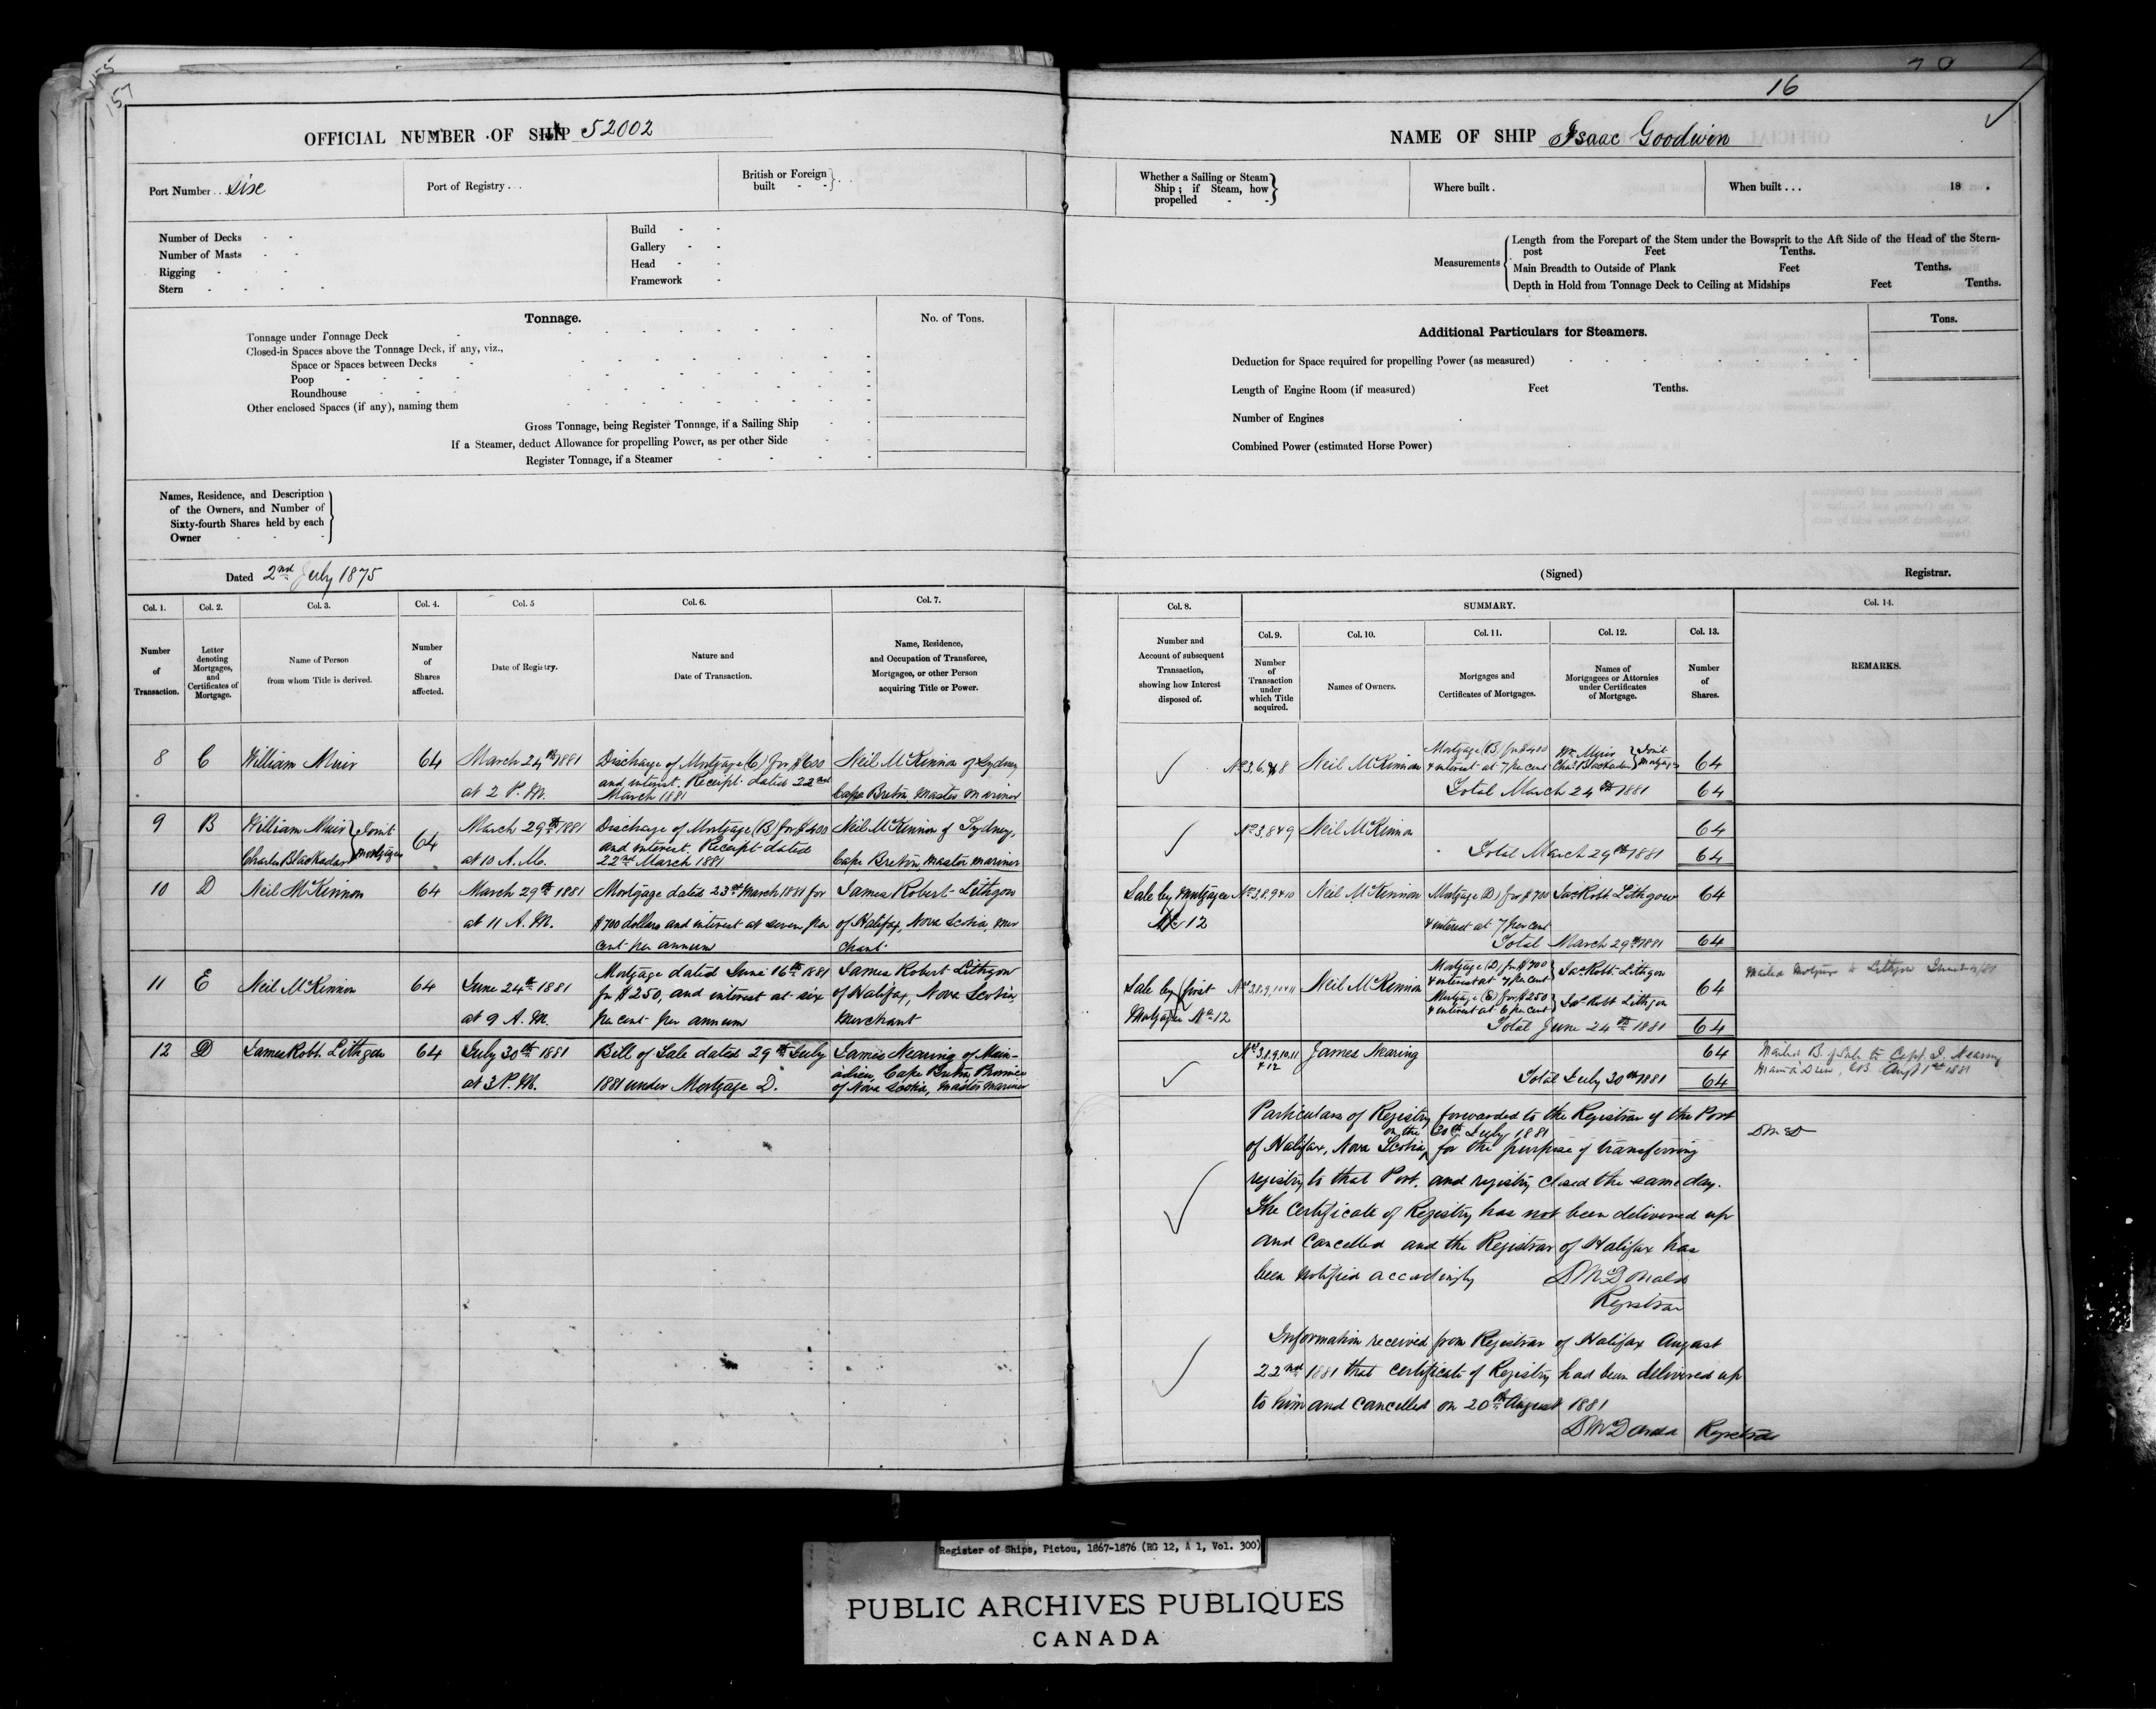 155
157
OFFICIAL NUMBER OF SHIP 52002
Port Number . . . Six
Port of Registry . . .
British or Foreign built - - } . .
Number of Decks - -
Number of Masts - -
Rigging - - -
Stern - - - -
Build - -
Gallery - -
Head - -
Framework -
Tonnage.
No. of Tons.
Tonnage under Tonnage Deck
Closed-in Spaces above the Tonnage Deck, if any, viz.,
Space or Spaces between Decks
Poop
Roundhouse
Other enclosed Spaces (if any), naming them
Gross Tonnage, being Register Tonnage, if a Sailing Ship
If a Steamer, deduct Allowance for propelling Power, as per other Side
Register Tonnage, if a Steamer
Names, Residence, and Description
of the Owners, and Number of
Sixty-fourth Shares held by each
Owner
Dated 2nd July 1875
Col. 1.
Number of Transaction.
Col. 2.
Letter denoting Mortgages, and Certificates of Mortgage.
Col. 3.
Name of Person from whom Title is derived.
Col. 4.
Number of Shares affected.
Col. 5
Date of Registry.
Col. 6.
Nature and Date of Transaction.
Col. 7.
Name, Residence, and Occupation of Transferee, Mortgagee, or other Person acquiring Title or Power.
8 C William Muir 64
March 24th 1881
at 2 P. M.
Discharge of Mortgage (C) for $600
and interest. Receipt dated 22nd
March 1881
Neil McKinnon of Sydney
Cape Breton, Master Mariner
9 B William Muir
Charles Blackadar } Joint Mortgagees 64
March 29th 1881
at 10 A. M.
Discharge of Mortgage (B) for $400
and interest. Receipt dated
22nd March 1881
Neil McKinnon of Sydney,
Cape Breton, master mariner
10 D Neil McKinnon 64
March 29th 1881
at 11 A. M.
Mortgage dated 23rd March 1881 for
$700 dollars and interest at seven per
cent per annum
James Robert Lithgow
of Halifax, Nova Scotia, mer
chant
11 E Neil McKinnon 64
June 24th 1881
at 9 A. M.
Mortgage dated June 16th 1881
for $250, and interest at six
per cent per annum
James Robert Lithgow
of Halifax, Nova Scotia,
Merchant
12 D James Robt. Lithgow 64
July 30th 1881
at 3 P. M.
Bill of Sale dated 29th July
1881 under Mortgage D.
James Nearing of Main-
adieu, Cape Breton Province
of Nova Scotia, Master Mariner
16
NAME OF SHIP Isaac Goodwin
Whether a Sailing or Steam Ship; if Steam, how propelled - - }
Where built .
When built . . . 18 .
Measurements
Length from the Forepart of the Stem under the Bowsprit to the Aft Side of the Head of the Stern-
post Feet Tenths.
Main Breadth to Outside of Plank Feet Tenths.
Depth in Hold from Tonnage Deck to Ceiling at Midships Feet Tenths.
Additional Particulars for Steamers.
Tons.
Deduction for Space required for propelling Power (as measured)
Length of Engine Room (if measured) Feet Tenths.
Number of Engines
Combined Power (estimated Horse Power)
(Signed) Registrar.
Col. 8.
Number and Account of subsequent Transaction, showing how Interest disposed of.
SUMMARY.
Col. 9.
Number of Transaction under which Title acquired.
Col. 10.
Names of Owners.
Col. 11.
Mortgages and Certificates of Mortgages.
Col. 12.
Names of Mortgagees or Attornies under Certificates of Mortgage.
Col. 13.
Number of Shares.
Col. 14.
REMARKS.
Nos 3, 6, 7 & 8 Neil McKinnon
Mortgage (B) for $400
& interest at 7 per cent
Wm Muir
Chas Blackadar } Joint Mortgagees 64
Total March 24th 1881 64
Nos 3, 8 & 9 Neil McKinnon 64
Total March 29th 1881 64
Sale by Mortgagee
No 12
Nos 3, 8, 9 & 10 Neil McKinnon
Mortgage (D) for $700
& interest at 7 per cent
Jas Robt. Lithgow 64
Total March 29th 1881 64
Sale by first
Mortgagee No 12
Nos 3, 8, 9, 10 & 11 Neil McKinnon
Mortgage (D) for $700
& interest at 7 per cent } Jas Robt. Lithgow
Mortgage (E) for $250
& interest at 6 per cent } Jas Robt Lithgow 64
Total June 24th 1881 64
Mailed Mortgage to Lithgow June
Nos 3, 8, 9, 10, 11
& 12
James Nearing 64
Total July 30th 1881 64
Mailed B. of Sale to Capt. J. Nearing
Main à Dieu, C.B. Augt 1st 1881
Particulars of Registry forwarded to the Registrar of the Port
on the 30th July, 1881
of Halifax, Nova Scotia, for the purpose of transferring
registry to that Port, and registry closed the same day.
The Certificate of Registry has not been delivered up
and cancelled and the Registrar of Halifax has
been notified accordingly
D McDonald
Registrar
D McD
Information received from Registrar of Halifax August
22nd 1881 that certificate of Registry had been delivered up
to him and cancelled on 20th August 1881
D McDonald Registrar
Register of Ships, Pictou, 1867-1876 (RG 12, A 1, Vol. 300)
PUBLIC ARCHIVES PUBLIQUES
CANADA